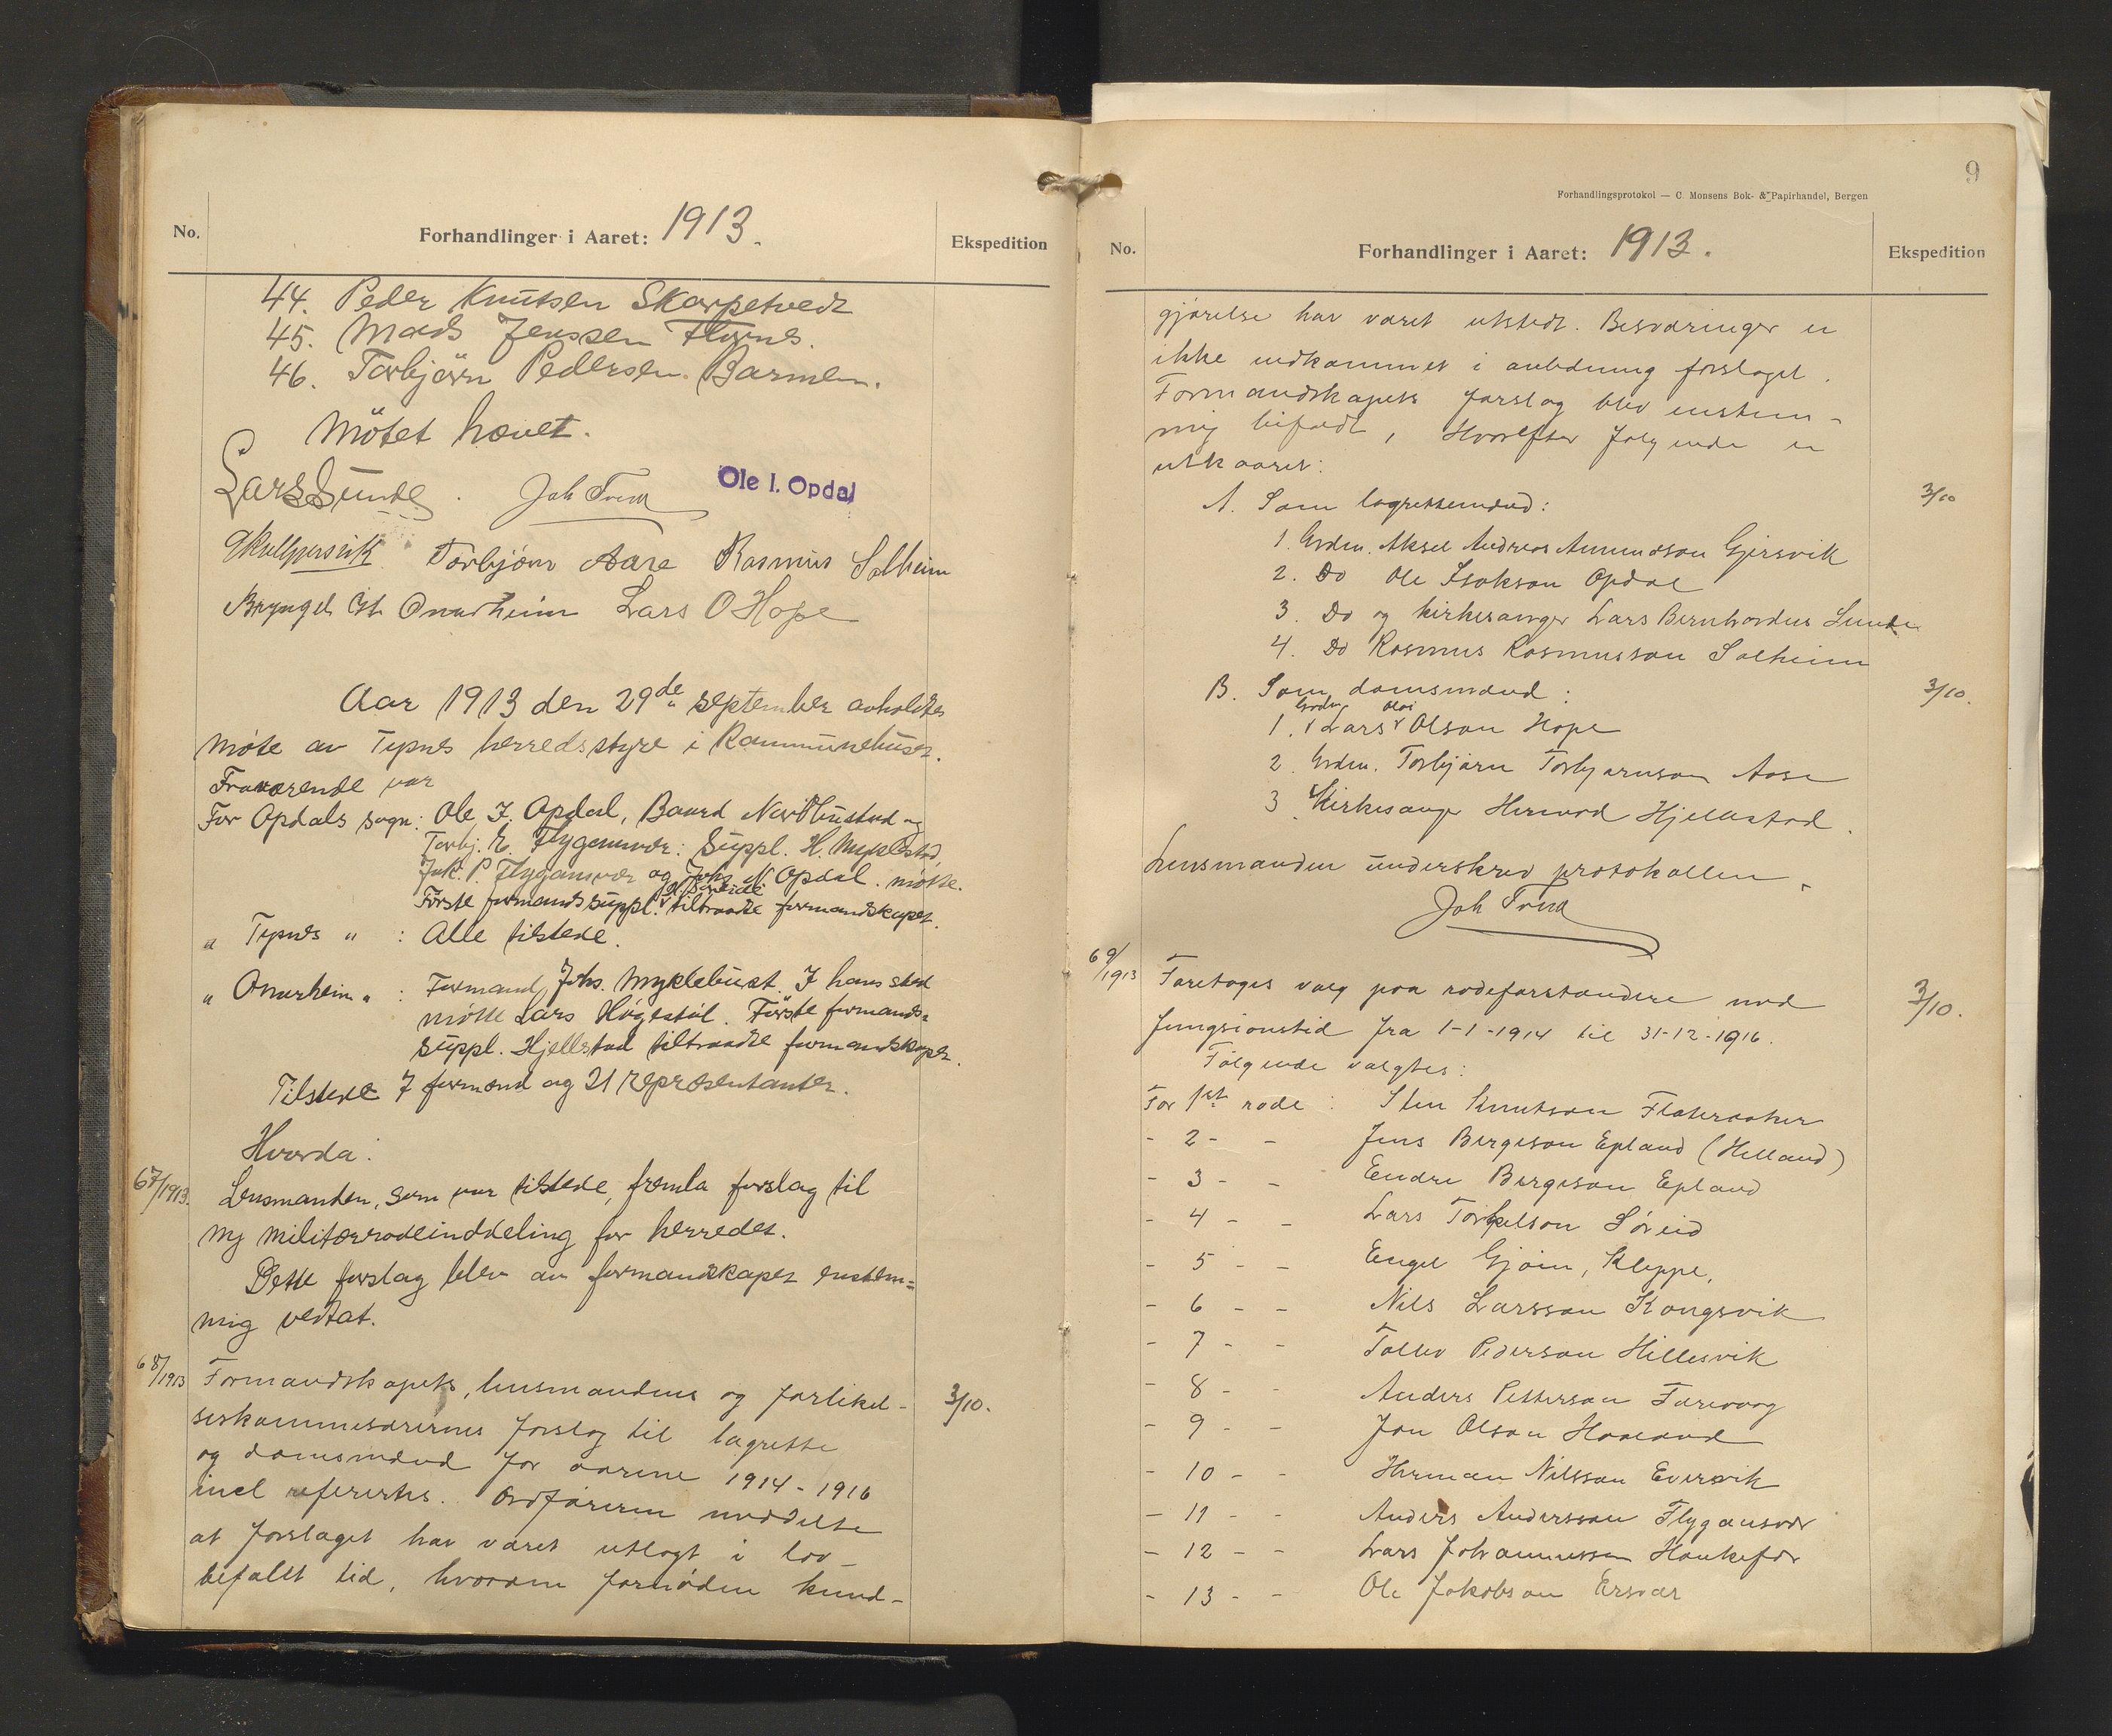 No.
Forhandlinger i Aaret: 1913.
Ekspedition
44. Peder Knutsen Skarpetvedt
45. Mads Jenssen Flornes.
46. Torbjörn Pedersen Barmen.
Mötet hævet.
Lars Sunde. Joh Tvedt
Ole I. Opdal
Torbjörn Aase Rasmus Solheim
Onarheim Lars O Hope
Aar 1913 den 29de september avholdtes
möte av Tysnes herredsstyre i Kommunehuset.
Fraværende var
For Opdals sogn: Ole I. Opdal, Baard Nordhustad og
Torbj. E. Flygansvær: Suppl. H. Myklestad,
Jak. P. Flygansvær og Johs N Opdal. mötte.
Förste formandssuppl. tiltraadte formandskapet.
" Tysnes " : Alle tilstede.
" Onarheim " : Formand Johs. Myklebust. I hans sted
mötte Lars Högestöl. Förste formands=
suppl. Hjellestad tiltraadte formandskapet.
Tilstede 7 formænd og 21 repræsentanter.
Hvorda:
67/1913. Lensmanden, som var tilstede, fremla forslag til
ny militærrodeinddeling for herredet.
Dette forslag blev av formandskapet enstem=
mig vedtat.
68/1913 Formandskapets, lensmandens og forlikel-
seskommisærernes forslag til lagrette 3/10.
og domsmænd for aarene 1914-1916
incl refereres. Ordføreren meddelte
at forslaget har været utlagt i lov-
befalt tid, hvorom fornøden kund-
9
Forhandlingsprotokol — C. Monsens Bok- & Papirhandel, Bergen
No.
Forhandlinger i Aaret: 1913.
Ekspedition
gjørelse har været utstedt. Besværinger er
ikke indkommet i anledning forslaget.
Formandskapets forslag blev enstem-
mig bifaldt, Hvorefter følgende er
utkaaret:
A. Som lagrettemænd: 3/10
1. Grdm. Aksel Andreas Amundson Gjersvik
2. Do Ole Isakson Opdal
3. Do og kirkesanger Lars Bernhardus Sunde
4. Do Rasmus Rasmusson Solheim
B. Som domsmænd: 3/10.
1. Grdm Lars Olai Olson Hope
2. Grdm. Torbjørn Torbjørnson Aase
3. Kirkesanger Hermod Hjellestad.
Lensmanden underskrev protokollen.
Joh Tvedt
69/1913 Foretoges valg paa rodeforstandere med 3/10.
fungsionstid fra 1-1-1914 til 31-12-1916.
Følgende valgtes:
For 1st rode: Sten Knutson Flateraaker
- 2 - - Jens Bergeson Epland (Helland)
- 3 - - Endre Bergeson Epland
- 4 - - Lars Torkelson Søreid
- 5 - - Engel Gjøen, Kleppe,
- 6 - - Nils Larsson Kongsvik
- 7 - - Tollev Pederson Hillesvik
- 8 - - Anders Petterson Færevaag
- 9 - - Jon Olson Haaland
- 10 - - Herman Nilsson Eversvik
- 11 - - Anders Andersson Flygansvær
- 12 - - Lars Johannessen Haukefær
- 13 - - Ole Jakobson Ersvær